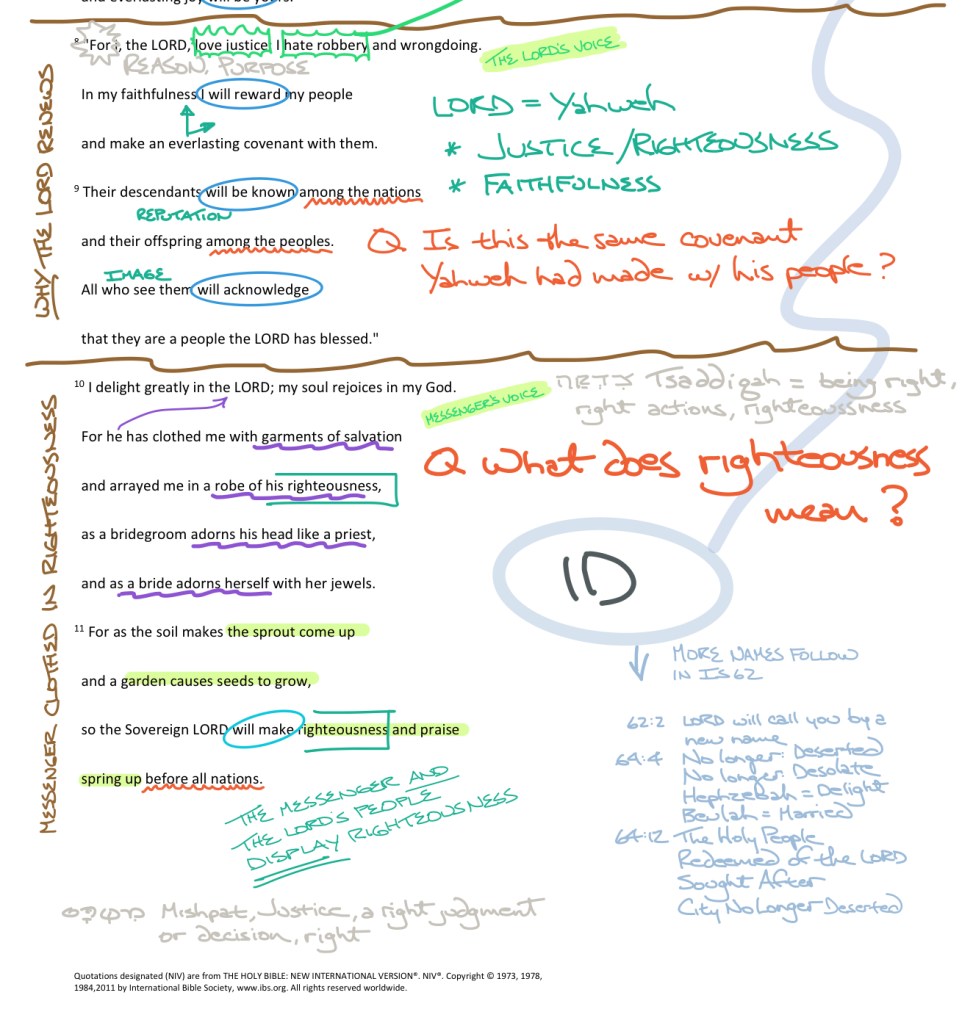 and everlasting joy will be yours.
8 "For I, the LORD, love justice; I hate robbery and wrongdoing.
THE LORD'S VOICE
REASON, PURPOSE
In my faithfulness I will reward my people
and make an everlasting covenant with them.
LORD = Yahweh
* JUSTICE/RIGHTEOUSNESS
* FAITHFULNESS
9 Their descendants will be known among the nations
REPUTATION
and their offspring among the peoples.
Q Is this the same covenant
Yahweh had made w/ his people?
IMAGE
All who see them will acknowledge
that they are a people the LORD has blessed."
WHY THE LORD RENEWS
10 I delight greatly in the LORD; my soul rejoices in my God.
MESSENGER'S VOICE
Tsaddiqah = being right,
right actions, righteoussness
For he has clothed me with garments of salvation
and arrayed me in a robe of his righteousness,
Q What does righteousness
mean?
as a bridegroom adorns his head like a priest,
and as a bride adorns herself with her jewels.
ID
11 For as the soil makes the sprout come up
and a garden causes seeds to grow,
so the Sovereign LORD will make righteousness and praise
spring up before all nations.
MESSENGER CLOTHED IN RIGHTEOUSNESS
THE MESSENGER AND
THE LORD'S PEOPLE
DISPLAY RIGHTEOUSNESS
MORE NAMES FOLLOW
IN IS 62
62:2 LORD will call you by a
new name
64:4 No longer: Deserted
No longer: Desolate
Hephzebah = Delight
Beulah = Married
64:12 The Holy People
Redeemed of the LORD
Sought After
City No Longer Deserted
Mishpat, Justice, a right judgment
or decision, right
Quotations designated (NIV) are from THE HOLY BIBLE: NEW INTERNATIONAL VERSION®. NIV®. Copyright © 1973, 1978,
1984,2011 by International Bible Society, www.ibs.org. All rights reserved worldwide.